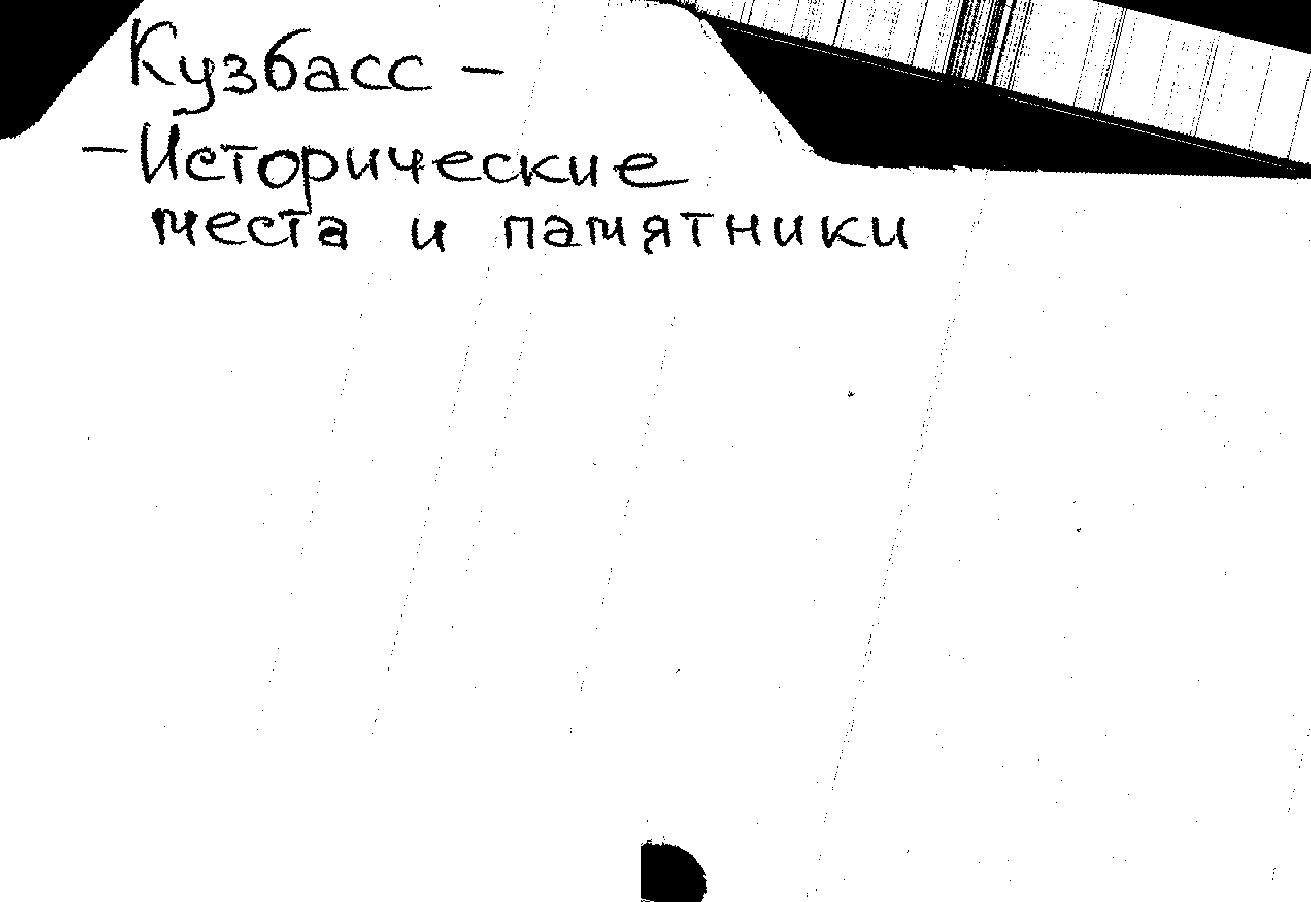 Кузбасс –
– Исторические
места и памятники